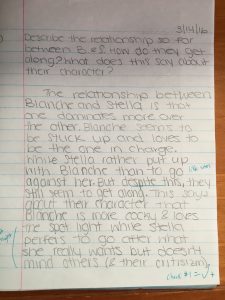 3/14/16
Describe the relationship so far
between B. & S. How do they get
along? What does this say about
their character?
The relationship between
Blanche and Stella is that
one dominates more over
the other. Blanche seems to
be stuck up and loves to
be the one in charge.
While Stella rather put up
with Blanche than to go
against her. But despite this, they
still seem to get along. This says
about their character that
Blanche is more cocky & loves
the spot light while Stella
perfers to go after what
she really wants but doesn't
mind others (& their criticism).
Check #1 = √+